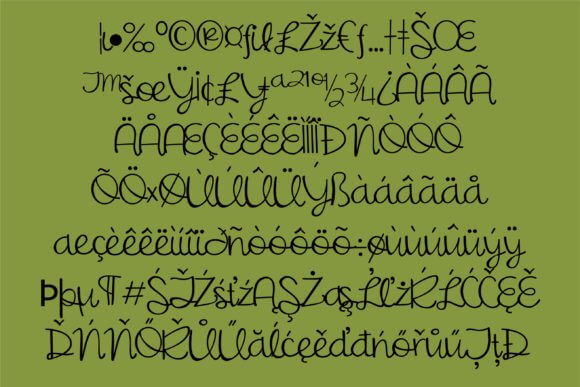 ¦•‰º©®¤ﬁﬂŁŽž€ƒ…†‡ŠŒ
™šœŸ¡¢£¥ª²¹⁰¹½¾¿ÀÁÂÃ
ÄÅÆÇÈÉÊËÌÍÎÏÐÑÒÓÔ
ÕÖ×ØÙÚÛÜÝßàáâãäå
æçèéêëìíîïðñòóôöõ÷øùúûüýÿ
Þþµ¶#ŚŤŹśťźĄŞŻąşĽľżŔĹĆČĘĚ
ĎŃŇŐŘŮŰăĺćęěďđńőřůűŢţĐ